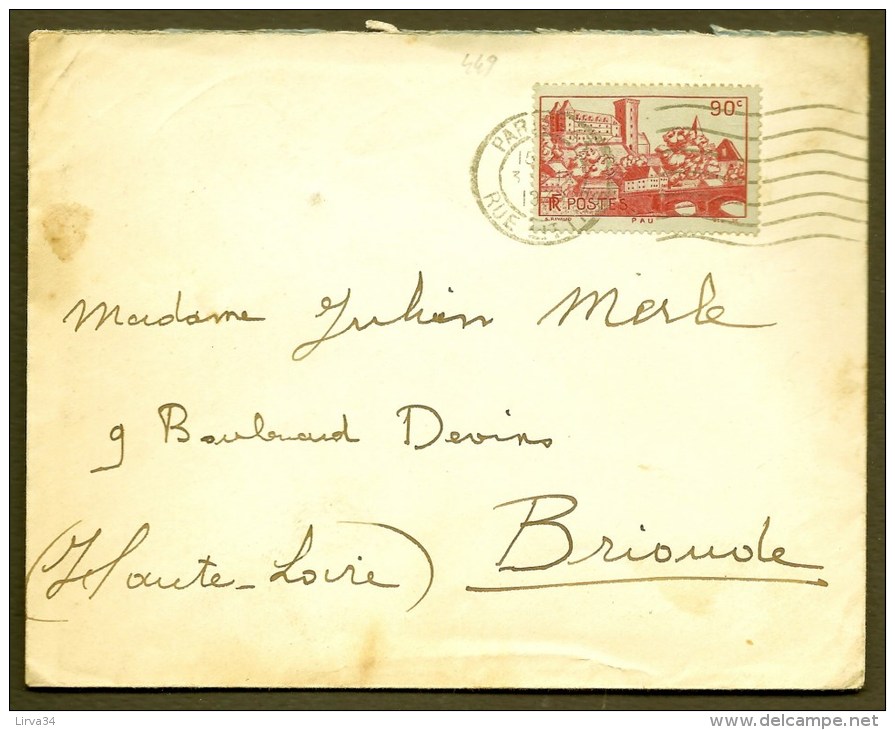 449
90c
PARIS
RUE
RF POSTES
PAU
Madame Julien Merle
9 Boulevard Devins
Brioude
(Haute-Loire)
Lirva34
delcampe.net